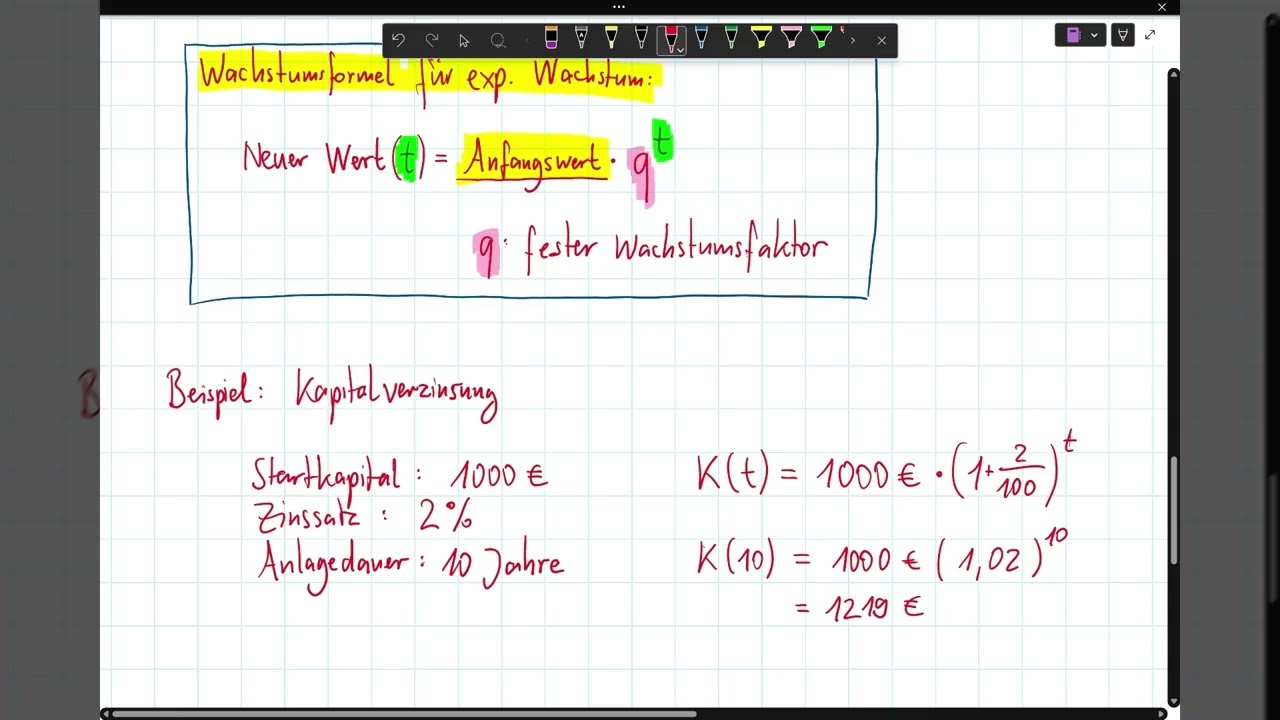 Wachstumsformel für exp. Wachstum:
Neuer Wert(t) = Anfangswert · q^t
q: fester Wachstumsfaktor
Beispiel: Kapitalverzinsung
Startkapital: 1000 €
Zinssatz: 2%
Anlagedauer: 10 Jahre
K(t) = 1000 € · (1+2/100)^t
K(10) = 1000 € (1,02)^10
= 1219 €